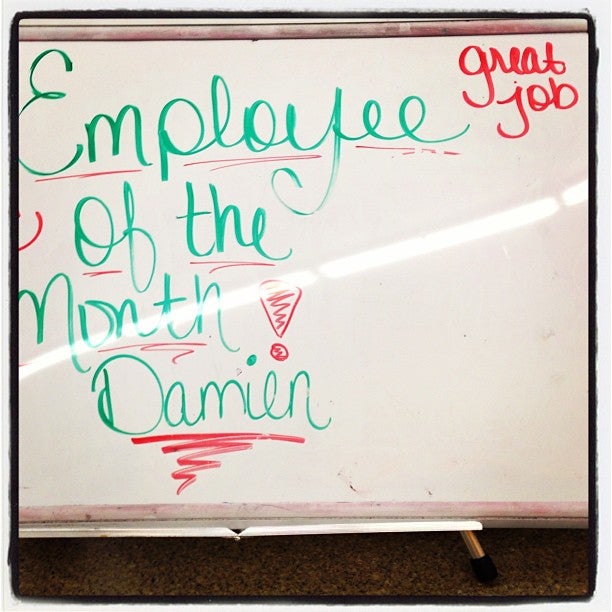 Employee
great
job
of the
Month!
Damien